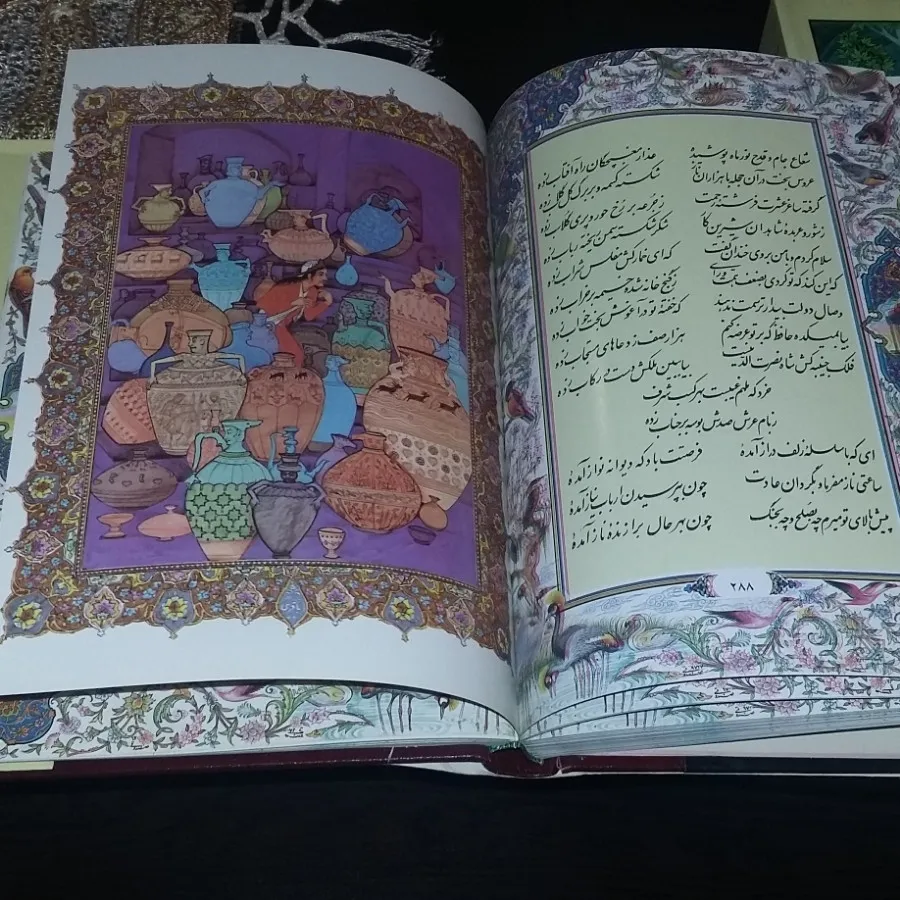 شعاع جام و قدح نور ماه پوشیده عذار مغبچگان راه آفتاب زده
عروس بخت در آن حجله با هزاران ناز شکسته کسمه و بر برگ گل گلاب زده
گرفته ساغر عشرت فرشته رحمت ز جرعه بر رخ حور و پری گلاب زده
ز شور و عربده شاهدان شیرین کار شکر شکسته سمن ریخته رباب زده
سلام کردم و با من بروی خندان گفت که ای خمارکش مفلس شراب زده
که این کند که تو کردی بضعف همت و رای ز گنج خانه شده خیمه بر خراب زده
وصال دولت بیدار ترسمت ندهند که خفته تو در آغوش بخت خواب زده
بیا بمیکده حافظ که بر تو عرضه کنم هزار صف ز دعاهای مستجاب زده
فلک جنیبه کش شاه نصرت الدینست بیا ببین ملکش دست در رکاب زده
خرد که ملهم غیبست بهر کسب شرف
ز بام عرش صدش بوسه بر جناب زده
ای که با سلسله زلف دراز آمدهٔ فرصتت باد که دیوانه نواز آمدهٔ
ساعتی ناز مفرما و بگردان عادت چون بپرسیدن ارباب نیاز آمدهٔ
پیش بالای تو میرم چه بصلح و چه بجنگ چون بهر حال برازنده ناز آمدهٔ
۲۸۸